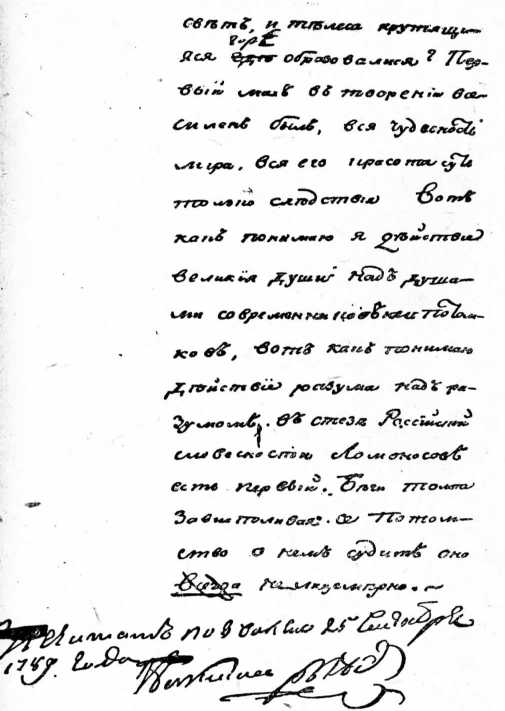 свѣтъ, и тѣлеса крутящи-
горѣ
яся образовалися? Пер-
вый махъ въ творенїи все-
силенъ былъ, вся чудесность
мира, вся его красота суть
только слѣдствїя Вотъ
какъ понимаю я дѣйствие
великїя души надъ душа-
ми современниковъ или пото-
ковъ, вотъ какъ понимаю
дѣйствїе разума надъ ра-
зумомъ. Въ стезѣ Россїйской
словесности Ломоносовъ
есть первый. Бѣги толпа
завистливая: се Потом-
ство о немъ судитъ оно
нелицемѣрно.
1789. года